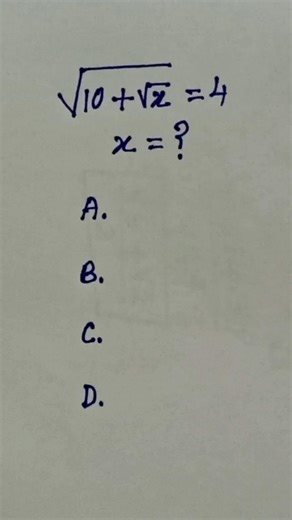 √(10 + √x) = 4
x = ?
A.
B.
C.
D.